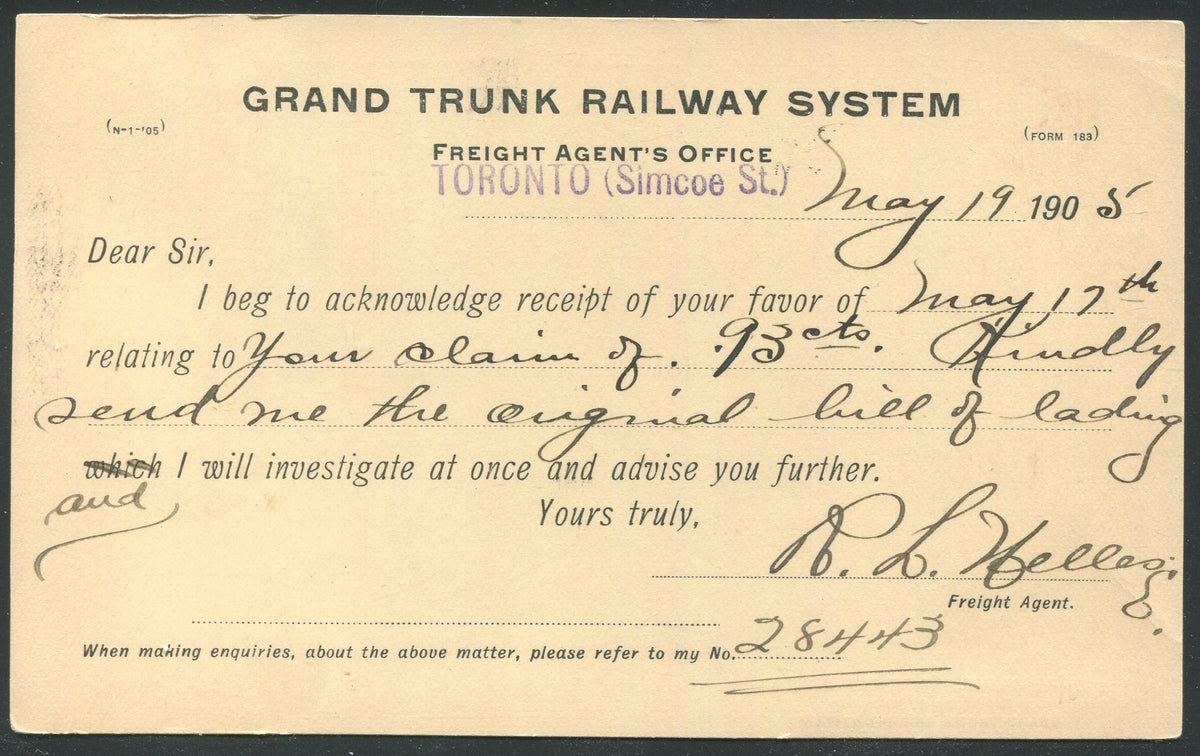 GRAND TRUNK RAILWAY SYSTEM
(N-1-'05)
(FORM 183)
FREIGHT AGENT'S OFFICE
TORONTO (Simcoe St.)
May 19 1905
Dear Sir,
I beg to acknowledge receipt of your favor of May 17th
relating to Your claim of .93cts. Kindly
send me the original bill of lading
which I will investigate at once and advise you further.
and
Yours truly,
R. L. Nelles.
Freight Agent.
When making enquiries, about the above matter, please refer to my No. 28443